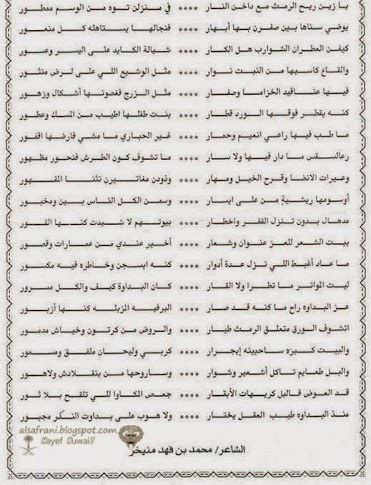 يا زين ريح الرمث مع داخن النار **** في منزلن توه من الوسم ممطور
يوضي سناها بين صفرن بها أبهار **** فنجالها يستاهله كل منعور
كيفن العطران الشوارب هل الكار **** شيالة الكايد على اليسر وعسور
والقاع كاسيها من النبت نوار **** مثل الوشيع اللي على لرض منثور
فيها عناقيد الخزاما وصفار **** مثل الزرج فغصونها أشكال وزهور
كنه يقطر فوقها الورد قطار **** بنت طفلها اطيب من المسك وعطور
ما طب فيها راعي انعيم وحمار **** غير الحباري ما مشي فارضها اقفور
رعالسقس ما دار فيها ولا سار **** ما تشوف كون الطرش فنحور مظهور
وعيرات الانضا وقرح الخيل ومهار **** وذودن مغاتيرن تثنا المقهور
أوسومها ريشية من على ايسار **** وسمن الكل الناس بين ومخبور
مدهال بدون تنزل القفر واخطار **** بيوتهم لا شيدت كنها القور
بيت الشعر للعز عنوان وشعار **** أخير عندي من عمارات وقصور
ما عاد أغبط اللي نزل عدة أدوار **** كنه ابسجن وخاطره فيه مكسور
ليت المواتر ما تطرا ولا القار **** كان البداوة كيف والكل مسرور
عز البداوه راح ما كنه قد صار **** البرفيه المزبله كنها أزبور
اتشوف الورق متعلق الرمث طيار **** والروض من كرتون وخياش مدمور
والبيت كبيره ساحبينه إبجرار **** كربي وليحان ملفق ومسمور
والبل طعايم تاكل أشعير وشوار **** وساروحها من بنقلادش ولاهور
قد العوض فالبل كريهات الأبقار **** جعص المكاوا اللي تلقح بلا ثور
منذ البداوه طيب العقل يختار **** ولا هوب على بداوت النكر مجبور
alsafrani.blogspot.com
الشاعر/ محمد بن فهد منيخر